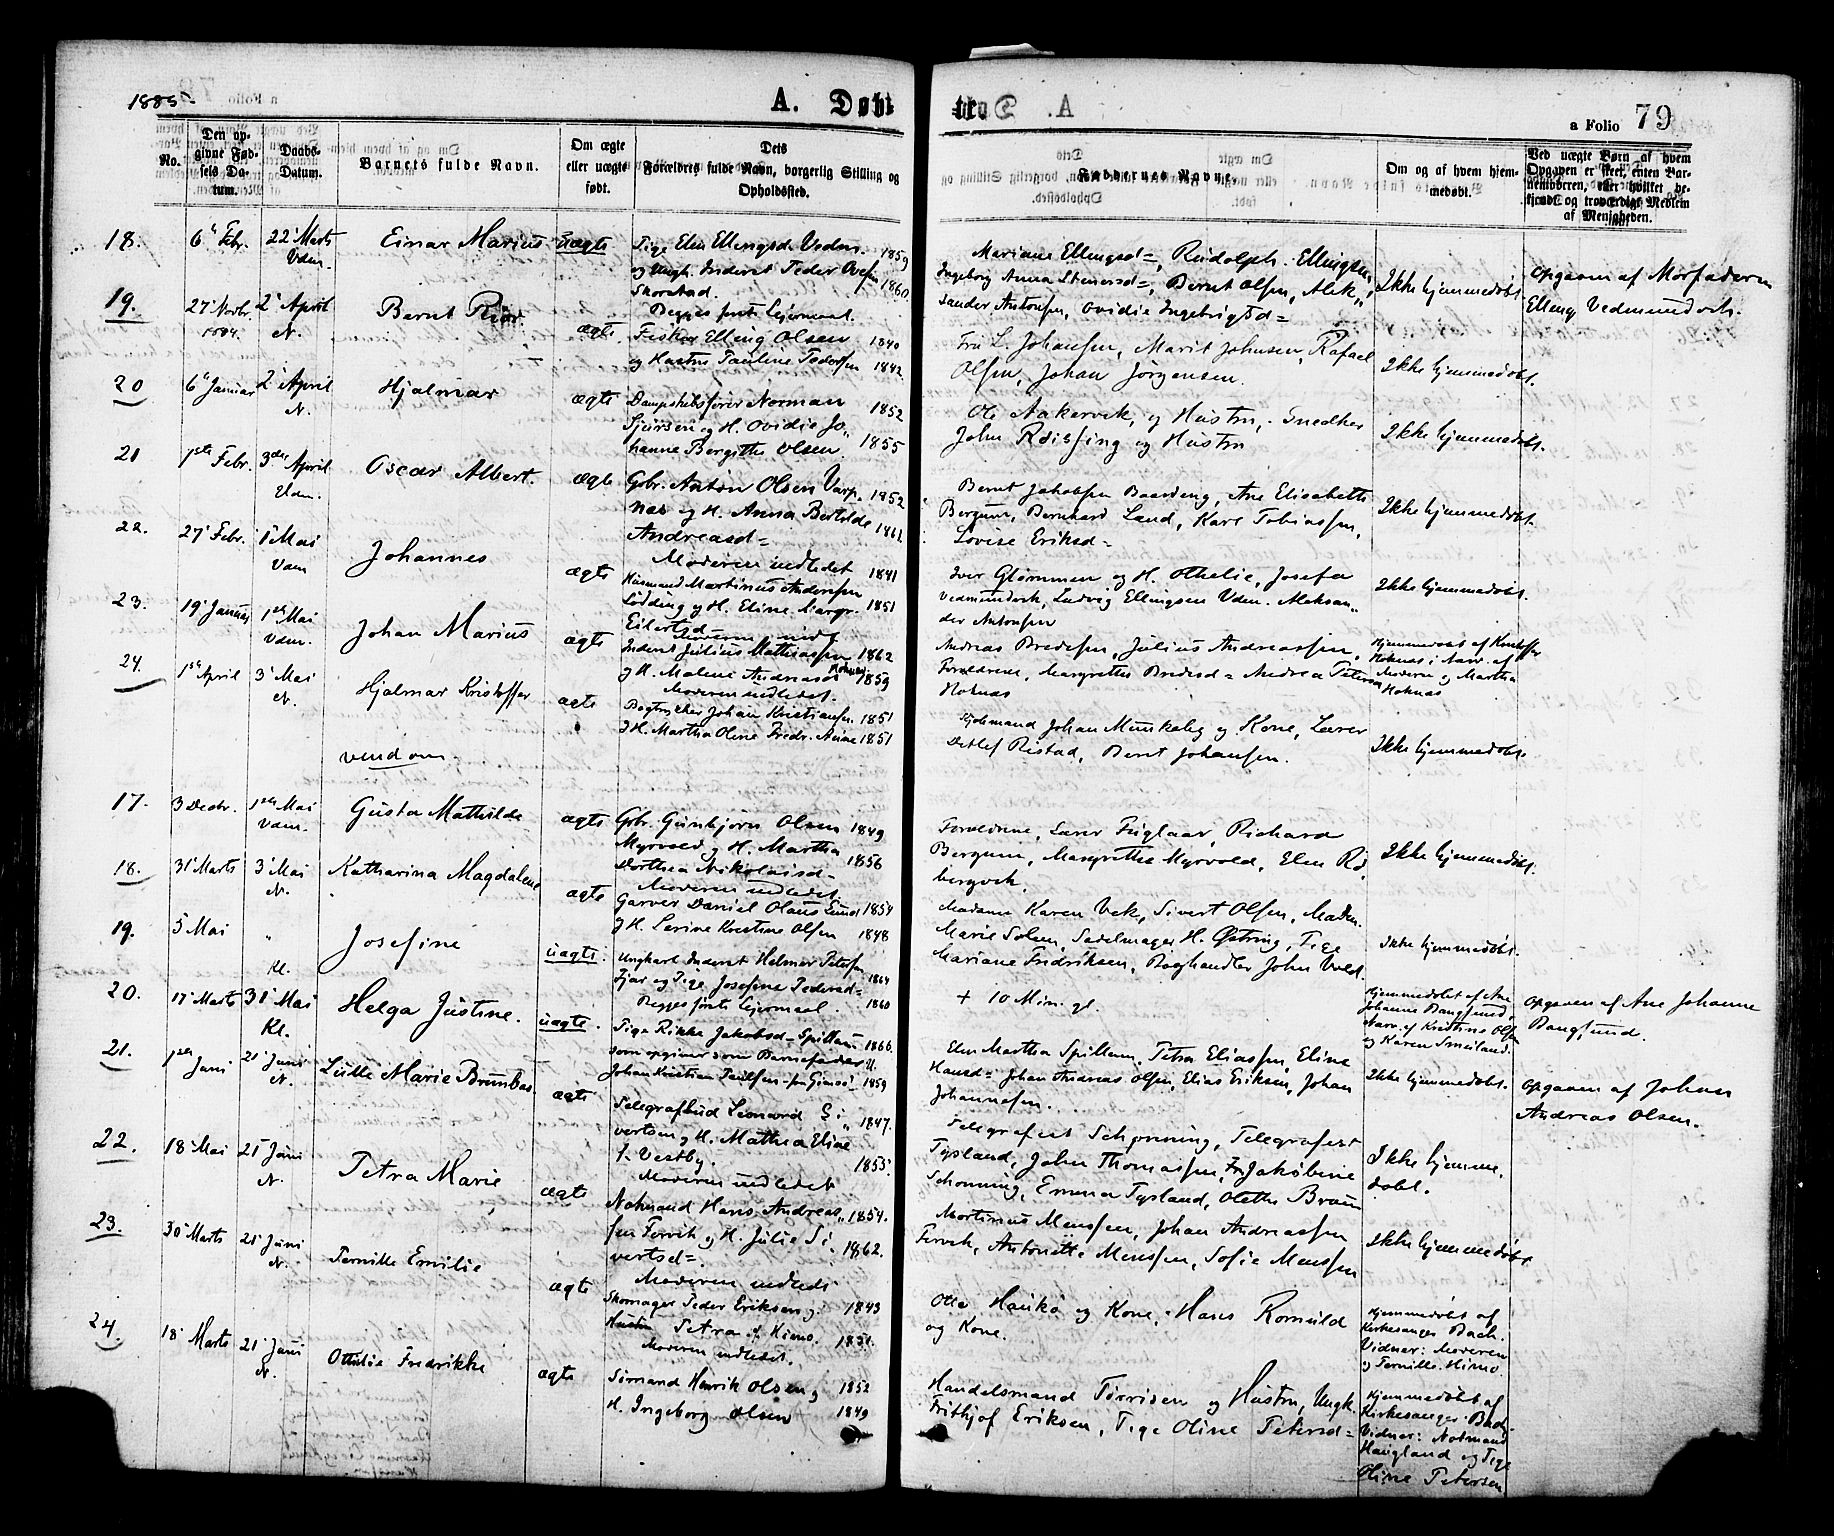 1885.
A. Døbte.
A. Døbte.
a Folio 79
No.
Den opgivne Fødsels Datum.
Daabs-Datum.
Barnets fulde Navn.
Om ægte eller uægte født.
Dets Forældres fulde Navn, borgerlig Stilling og Opholdssted.
Faddernes Navne.
Om og af hvem hjemmedøbt.
Ved uægte Børn af hvem Opgaven er skeet, enten Barnemoderen, eller hvilket bekjendt og troværdigt Medlem af Menigheden.
18. 6' Febr. 22' Marts Vdm. Einar Marius Uægte
Pige Elen Ellingsd. Vedm. 1859
og Ungk. Inderst Peder Ovesen 1860
Skorstad.
Begges første Leiermaal.
Mariane Ellingsd=, Rudolph Ellingsen,
Ingeborg Anna Steinersd=, Bernt Olsen, Alek„
sander Antonsen, Ovidie Ingebrigtsd=
Ikke hjemmedøbt.
Opgaven af Morfaderen
Elling Vedmundvik.
19. 27' Novbr. 1884. 2' April N. Bernt ægte
Fisker Elling Olsen 1840
og Hustru Pauline Pedersen 1842.
Fru L. Johansen, Marit Johnsen, Rafael
Olsen, Johan Jørgensen.
Ikke hjemmedøbt.
20 6' Januar 2' April N. Hjalmar ægte
Dampskibsfører Norman 1852
Sjursen og H. Ovidie Jo„ 1855
hanne Bergitte Olsen.
Ole Aakervik og Hustru, Snedker
John Røissing og Hustru
Ikke hjemmedøbt.
21 1ste Febr. 3die April Vdm. Oscar Albert. ægte
Gbr. Anton Olsen Varp„ 1852
næs og H. Anna Bertilde 1861
Andreasd=
Moderen indledet
Bernt Jakobsen Baardeng, Ane Elisabeth
Bergum, Bernhard Land, Karl Tobiassen,
Lovise Eriksd=
Ikke hjemmedøbt.
22. 27' Febr. 1' Mai Vdm Johannes ægte
Husmand Martinus Andersen 1841
Lødding og H. Eline Margr. 1851
Eilertsd
Moderen indl.
Iver Glømmen og H. Othelie, Josefa
Vedmundvik, Ludvig Ellingsen Vdm. Aleksan„
der Antonsen
Ikke hjemmedøbt.
23. 19' Januar 1ste Mai Vdm. Johan Marius ægte
Inderst Julius Mathiassen 1862
og H. Malene Andreasd Hoknæs 1859
Moderen indledet.
Andreas Bredesen, Julius Andreassen,
Forældrene, Margrethe Bredesd= Andrea Petersen
Hoknæs
Hjemmedøbt af Kristoffer
Hoknæs i Nærv. af
Moderen og Martha
Hoknæs
24. 1ste April 3' Mai N. Hjalmar Kristoffer ægte
Bogtrykker Johan Kristiansen 1851
og H. Martha Oline Fredr. Aune 1851
Kjøbmand Johan Munkeby og Kone, Lærer
Detlef Ristad, Bernt Johansen.
Ikke hjemmedøbt.
vend om
17. 3 Decbr. 1ste Mai Vdm. Gusta Mathilde ægte
Gbr. Gunbjørn Olsen 1849
Myrvold og H. Martha 1856
Dorthea Nikolaisd=
Moderen indledet
Forældrene, Lærer Fuglaar, Richard
Bergum, Margrethe Myrvold, Elen Rø„
bergvik.
Ikke hjemmedøbt.
18. 31' Marts 3' Mai N. Katharina Magdalene ægte
Garver Daniel Olaus 1854
og H. Serine Kristine Olsen 1848
Madame Karen Vik, Sivert Olsen, Madm.
Marie Solem, Sadelmager H. Østring, Pige
Mariane Fredriksen, Boghandler John Vold.
Ikke hjemmedøbt.
19. 5 Mai „ Kl. Josefine uægte.
Ungkarl Inderst Helmer Petersen 1864
Tjær og Pige Josefine Pedersd= 1860
Begges første Leiermaal.
+ 10 Min. gl.
Hjemmedøbt af Ane
Johanne Bangsund,
Nærv. af Kristine Olsen
og Karen Smeiland.
Opgaven af Ane Johanne
Bangsund.
20. 17' Marts 31' Mai Kl. Helga Justine. uægte.
Pige Rikke Jakobsd= Spillum 1866.
som opgiver som Barnefader U.
Johan Kristian Paulsen fra Gimsø 1859
Elen Martha Spillum, Petra Eliassen, Eline
Hansd= Johan Andreas Olsen, Elias Eriksen, Johan
Johannesen.
Ikke hjemmedøbt.
Opgaven af Johan
Andreas Olsen.
21. 1ste Juni 21' Juni N. Lulle Marie Brunbas ægte
Telegrafbud Leonard Si„ 1847.
vertsen og H. Mathea Eline
f. Vestby. 1853.
Moderen indledet
Telegrafist Schønning, Telegrafist
Tysland, John Thomassen, Fr. Jakobine
Schønning, Emma Tysland, Olethe Braun
Ikke hjemme„
døbt.
22. 18' Mai 21' Juni N. Petra Marie ægte
Notmand Hans Andreas„ 1854.
sen Tørvik og H. Julie Si„ 1862.
vertsd=.
Moderen indledt
Mortinus Monssen, Johan Andreassen
Tørvik, Antonette Monssen, Sofie Monssen
Ikke hjemmedøbt
23. 30' Marts 21' Juni N. Pernille Emilie ægte
Skomager Peder Eriksen og 1843
Hustru Petra f. Himo. 1851.
Moderen indledet.
Otto Haukø og Kone, Hans Romuld
og Kone.
Hjemmedøbt af
Kirkesanger Bach.
Vidner: Moderen
og Pernille Himo
24. 18' Marts 21' Juni N. Ottilie Fredrikke ægte
Sømand Henrik Olsen og 1852
H. Ingeborg Olsen 1849
Handelsmand Torrisen og Hustru, Ungk.
Frithjof Eriksen, Pige Oline Petersd=
Hjemmedøbt af
Kirkesanger Bach.
Vidner: Notmand
Haugland og Pige
Oline Petersen.